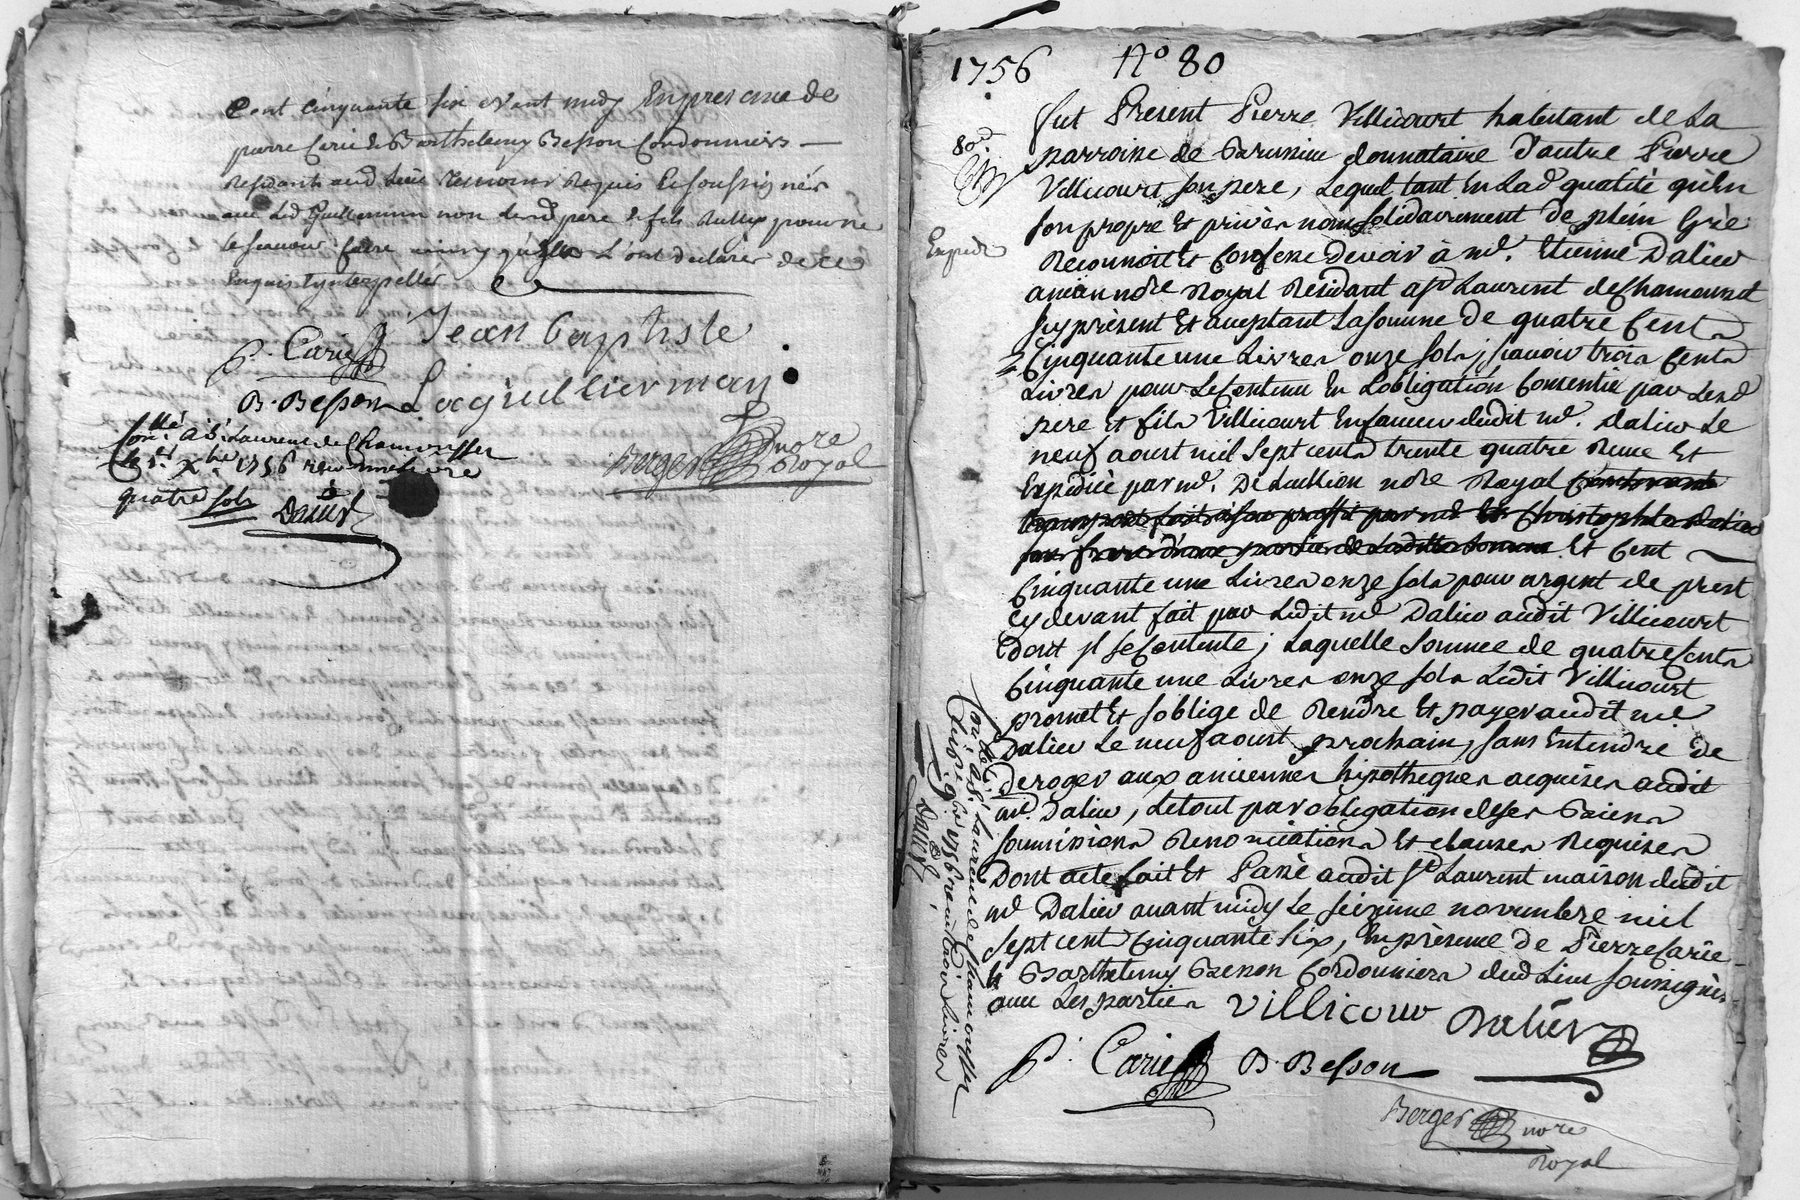 Cent cinquante six avant midy En presence de
pierre Carié & Barthelemy Besson Cordonniers
Residants aud Lieu temoins Requis & soussignés
avec Led Guillermin non Led pere & fils pour ne
le scavoir faire ainsy qu'ils L'ont declarés de ce
Enquis & ynterpellés
Jean baptiste
P. Carié
Laguilliermain
B. Besson
Conllé a St Laurent de Chamousset
le 1er Xbre 1756 reçu
quatre sols
Dalier
Berger nore
Royal
1756 No 80
80e
Expedié
fut Present Pierre Villicourt habitant de La
parroisse de donnataire d'autre Pierre
Villicourt son pere, Lequel tant En Lad qualité qu'En
son propre Et privés noms solidairement de plein Gré
Reconnoit Et Confesse devoir à me. Etienne Dalier
ancien nore Royal Residant a St Laurent de Chamousset
jcy présent Et aceptant La somme de quatre Cents
Cinquante une Livres onze sols; scavoir trois Cents
Livres pour Le Contenu En L'obligation Consentie par Lesd
pere et fils Villicourt En faveur dudit me. Dalier Le
neuf aoust mil sept cents trente quatre Reçue Et
Expediée par me. De nore Royal
Et Cent
Cinquante une Livres onze sols pour argent de prest
Cy devant fait par Ledit me Dalier audit Villicourt
dont jl se Contente; Laquelle somme de quatre Cents
Cinquante une Livres onze sols Ledit Villicourt
promet Et s'oblige de Rendre Et payer audit me
Dalier Le neuf aoust prochain, sans Entendre de
deroger aux anciennes hipotheques acquises audit
me. Dalier, Le tout par obligation de ses Biens
soumissions Renonciations Et clauses Requises
Dont acte fait Et Passé audit St Laurent maison dudit
me Dalier avant midy Le seizieme novembre mil
sept cent Cinquante six, En présence de Pierre Carié
& Barthelemy Besson Cordonniers dud Lieu soussignés
avec Les parties
Villicour
Dalier
P. Carié
B. Besson
Berger nore
Royal
Conllé a St Laurent de Chamousset
1756 reçu trois livres
Dalier